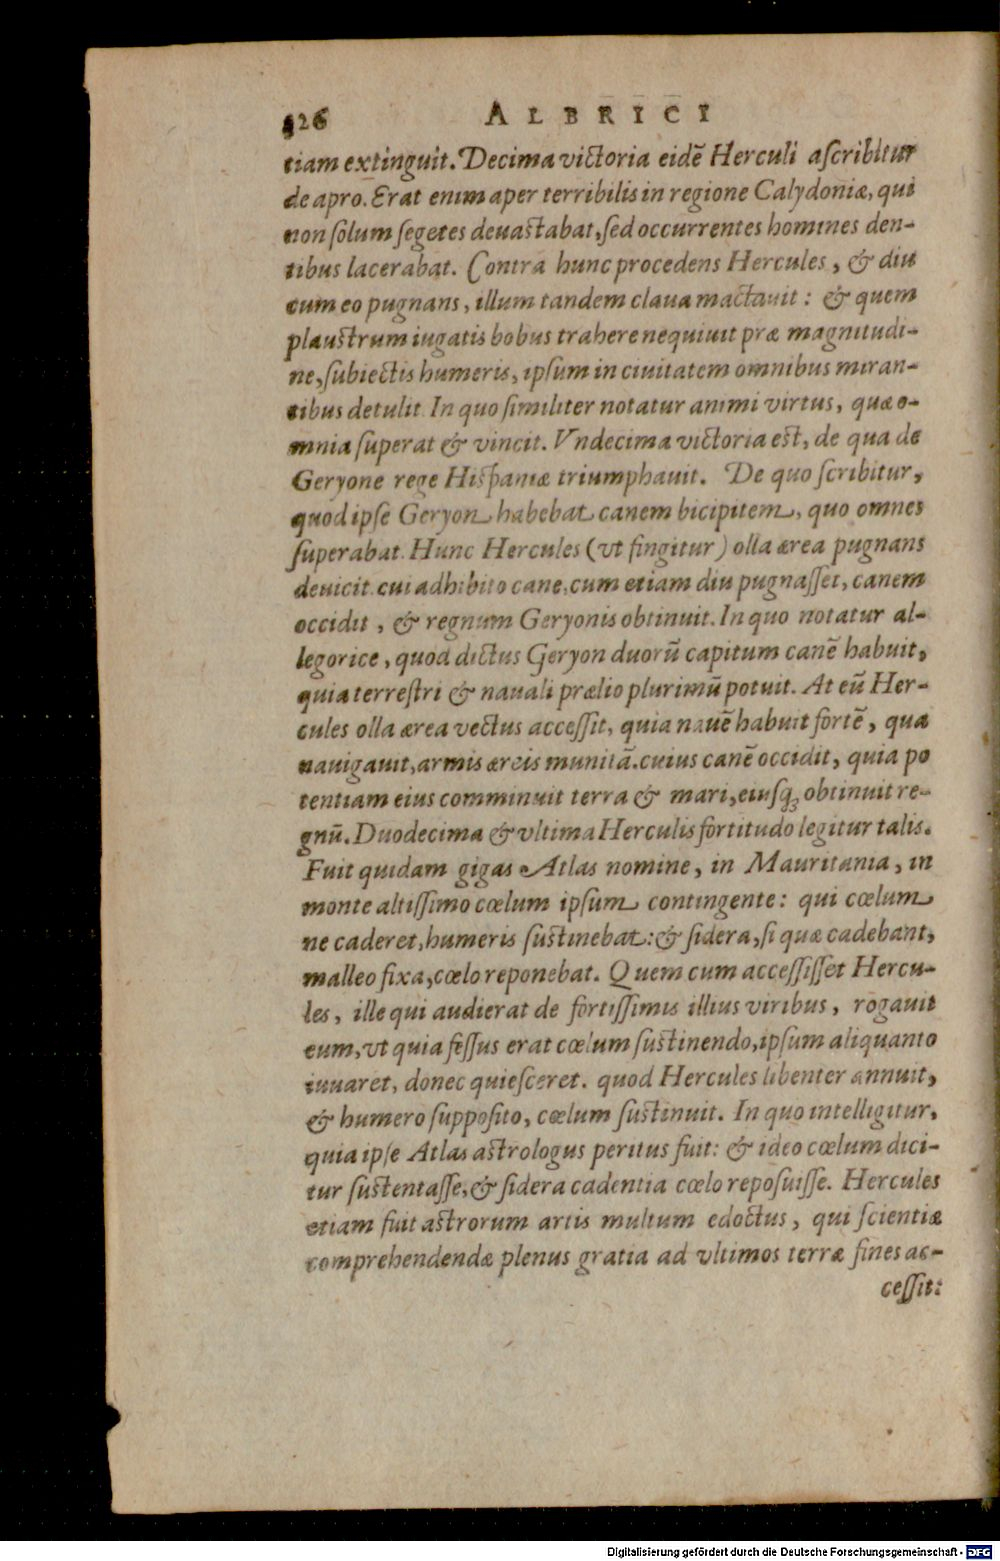 426 ALBRICI
tiam extinguit. Decima victoria eidē Herculi aſcribitur
de apro. Erat enim aper terribilis in regione Calydoniæ, qui
non ſolum ſegetes deuastabat, ſed occurrentes homines den-
tibus lacerabat. Contra hunc procedens Hercules, & diu
cum eo pugnans, illum tandem claua mactauit: & quem
plaustrum iugatis bobus trahere nequiuit præ magnitudi-
ne, ſubiectis humeris, ipſum in ciuitatem omnibus miran-
tibus detulit. In quo ſimiliter notatur animi virtus, quæ o-
mnia ſuperat & vincit. Vndecima victoria est, de qua de
Geryone rege Hiſpaniæ triumphauit. De quo ſcribitur,
quod ipſe Geryon habebat canem bicipitem, quo omnes
ſuperabat. Hunc Hercules (vt fingitur) olla ærea pugnans
deuicit. cui adhibito cane, cum etiam diu pugnaſſet, canem
occidit, & regnum Geryonis obtinuit. In quo notatur al-
legorice, quod dictus Geryon duorū capitum canē habuit,
quia terreſtri & nauali prælio plurimū potuit. At eū Her-
cules olla ærea vectus acceſſit, quia nauē habuit fortē, qua
nauigauit, armis æreis munitā. cuius canē occidit, quia po
tentiam eius comminuit terra & mari, eiuſq; obtinuit re-
gnū. Duodecima & vltima Herculis fortitudo legitur talis.
Fuit quidam gigas Atlas nomine, in Mauritania, in
monte altiſſimo cœlum ipſum contingente: qui cœlum
ne caderet, humeris ſustinebat: & ſidera, ſi quæ cadebant,
malleo fixa, cœlo reponebat. Quem cum acceſſiſſet Hercu-
les, ille qui audierat de fortiſſimis illius viribus, rogauit
eum, vt quia feſſus erat cœlum ſustinendo, ipſum aliquanto
iuuaret, donec quieſceret. quod Hercules libenter annuit,
& humero ſuppoſito, cœlum ſustinuit. In quo intelligitur,
quia ipſe Atlas astrologus peritus fuit: & ideo cœlum dici-
tur ſustentaſſe, & ſidera cadentia cœlo repoſuiſſe. Hercules
etiam fuit astrorum artis multum edoctus, qui ſcientiæ
comprehendendæ plenus gratia ad vltimos terræ fines ac-
ceſſit:
Digitalisierung gefördert durch die Deutsche Forschungsgemeinschaft - DFG